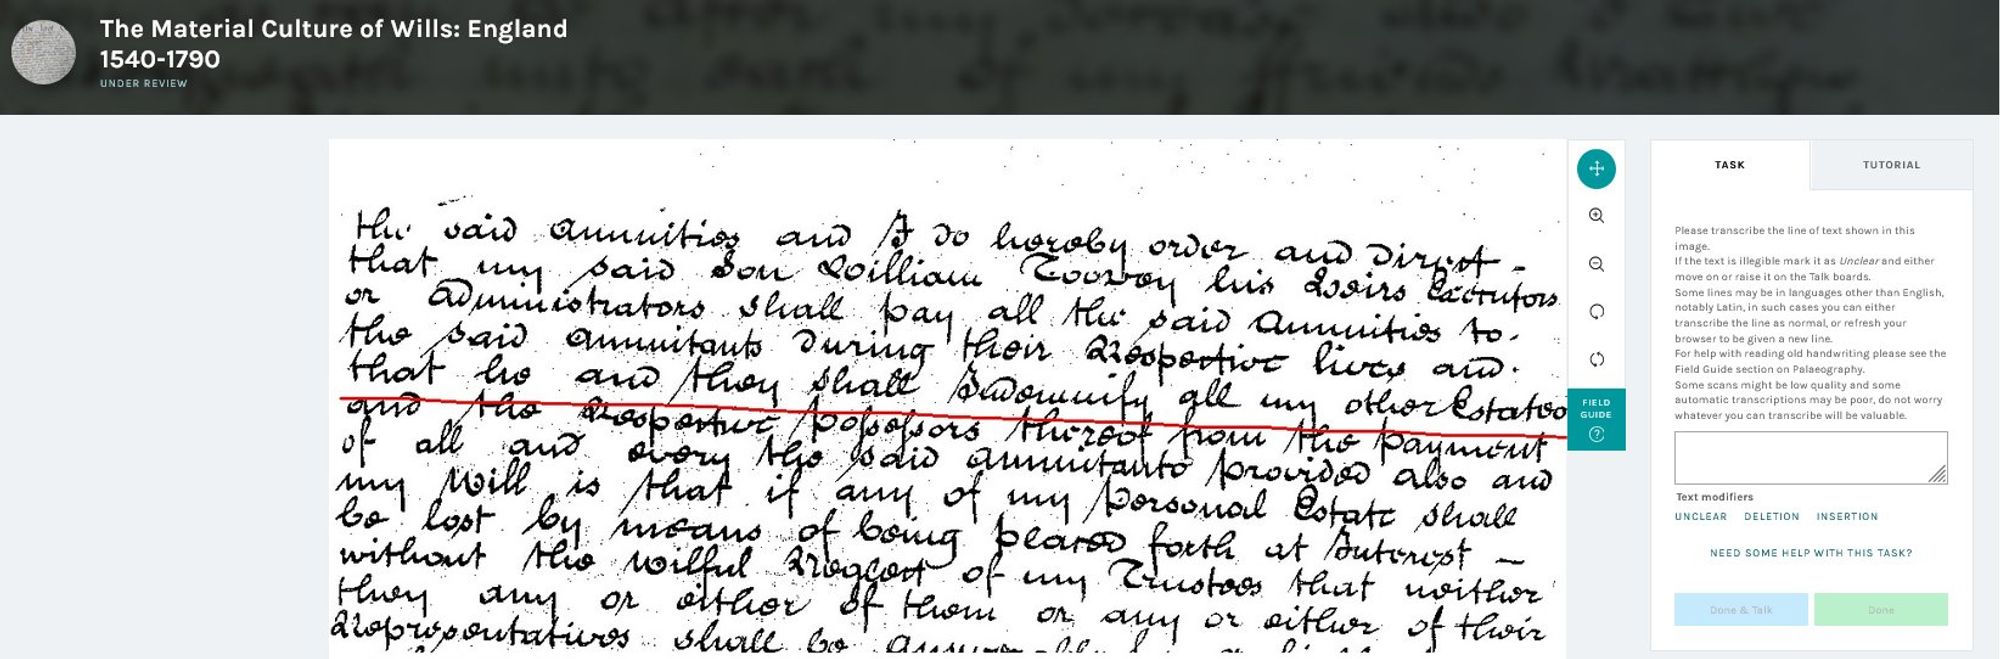 The Material Culture of Wills: England
1540-1790
UNDER REVIEW
the said Annuities and I do hereby order and Direct
that my said Son William his Heirs Executors
or Administrators shall pay all the said Annuities to
the said Annuitants During their Respective lives and
that he and they shall Indemnify all my other Estates
and the Respective possessors thereof from the payment
of all and every the said Annuitants provided also and
my Will is that if any of my personal Estate shall
be lost by means of being placed forth at Interest
without the wilful Neglect of my Trustees that neither
they any or either of them or any or either of their
Representatives shall be
TASK
TUTORIAL
Please transcribe the line of text shown in this
image.
If the text is illegible mark it as Unclear and either
move on or raise it on the Talk boards.
Some lines may be in languages other than English,
notably Latin, in such cases you can either
transcribe the line as normal, or refresh your
browser to be given a new line.
For help with reading old handwriting please see the
Field Guide section on Palaeography.
Some scans might be low quality and some
automatic transcriptions may be poor, do not worry
whatever you can transcribe will be valuable.
Text modifiers
UNCLEAR DELETION INSERTION
NEED SOME HELP WITH THIS TASK?
Done & Talk
Done
FIELD
GUIDE